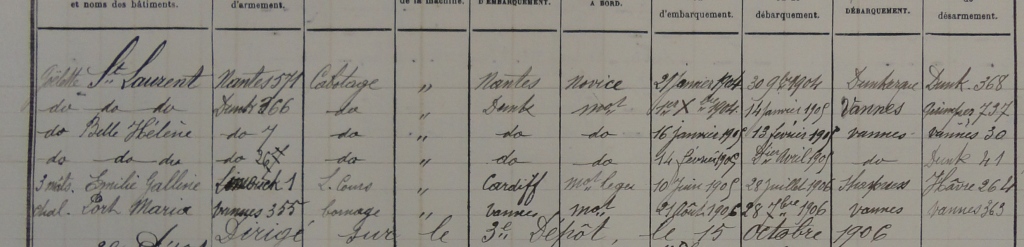 et noms des bâtiments. d'armement. de la machine. D'EMBARQUEMENT. A BORD. d'embarquement. débarquement. DÉBARQUEMENT. désarmement.
Goëlette St Laurent Nantes 571 Cabotage " Nantes novice 21 janvier 1904 30 9bre 1904 Dunkerque Dunk. 368
do do do Dunk 366 do " Dunk mot 1er Xbre 1904 14 janvier 1905 Vannes Quimper 737
do Belle Hélène do 7 do " do do 16 janvier 1905 13 février 1905 Vannes Vannes 30
do do do do do " do do 14 février 1905 avril 1905 do Dunk 41
3 mâts. Emilie Galline 1 L. Cours " Cardiff mot leger 10 juin 1905 28 juillet 1906 Hâvre 264
chal. Port Maria Vannes 355 bornage " Vannes mot 21 Août 1906 28 7bre 1906 Vannes Vannes 363
Dirigé sur le 3e Dépôt, le 15 Octobre 1906